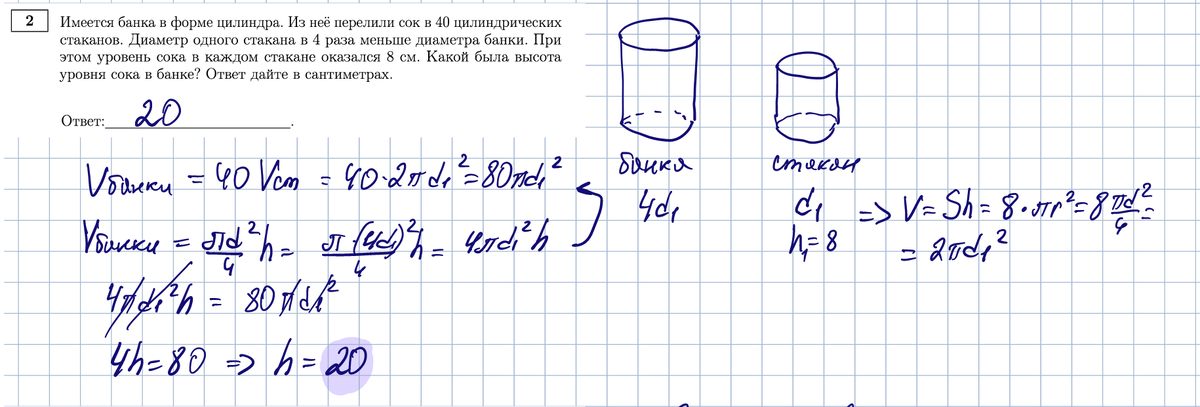 2
Имеется банка в форме цилиндра. Из неё перелили сок в 40 цилиндрических
стаканов. Диаметр одного стакана в 4 раза меньше диаметра банки. При
этом уровень сока в каждом стакане оказался 8 см. Какой была высота
уровня сока в банке? Ответ дайте в сантиметрах.
Ответ: 20.
банка
4d₁
стакан
d₁ => V = Sh = 8·πr² = 8 πd²/4 =
h₁ = 8
= 2πd₁²
Vбанки = 40 Vст = 40·2πd₁² = 80πd₁²
Vбанки = πd²/4 h = π·(4d₁)²/4 h = 4πd₁²h
4πd₁²h = 80πd₁²
4h = 80 => h = 20